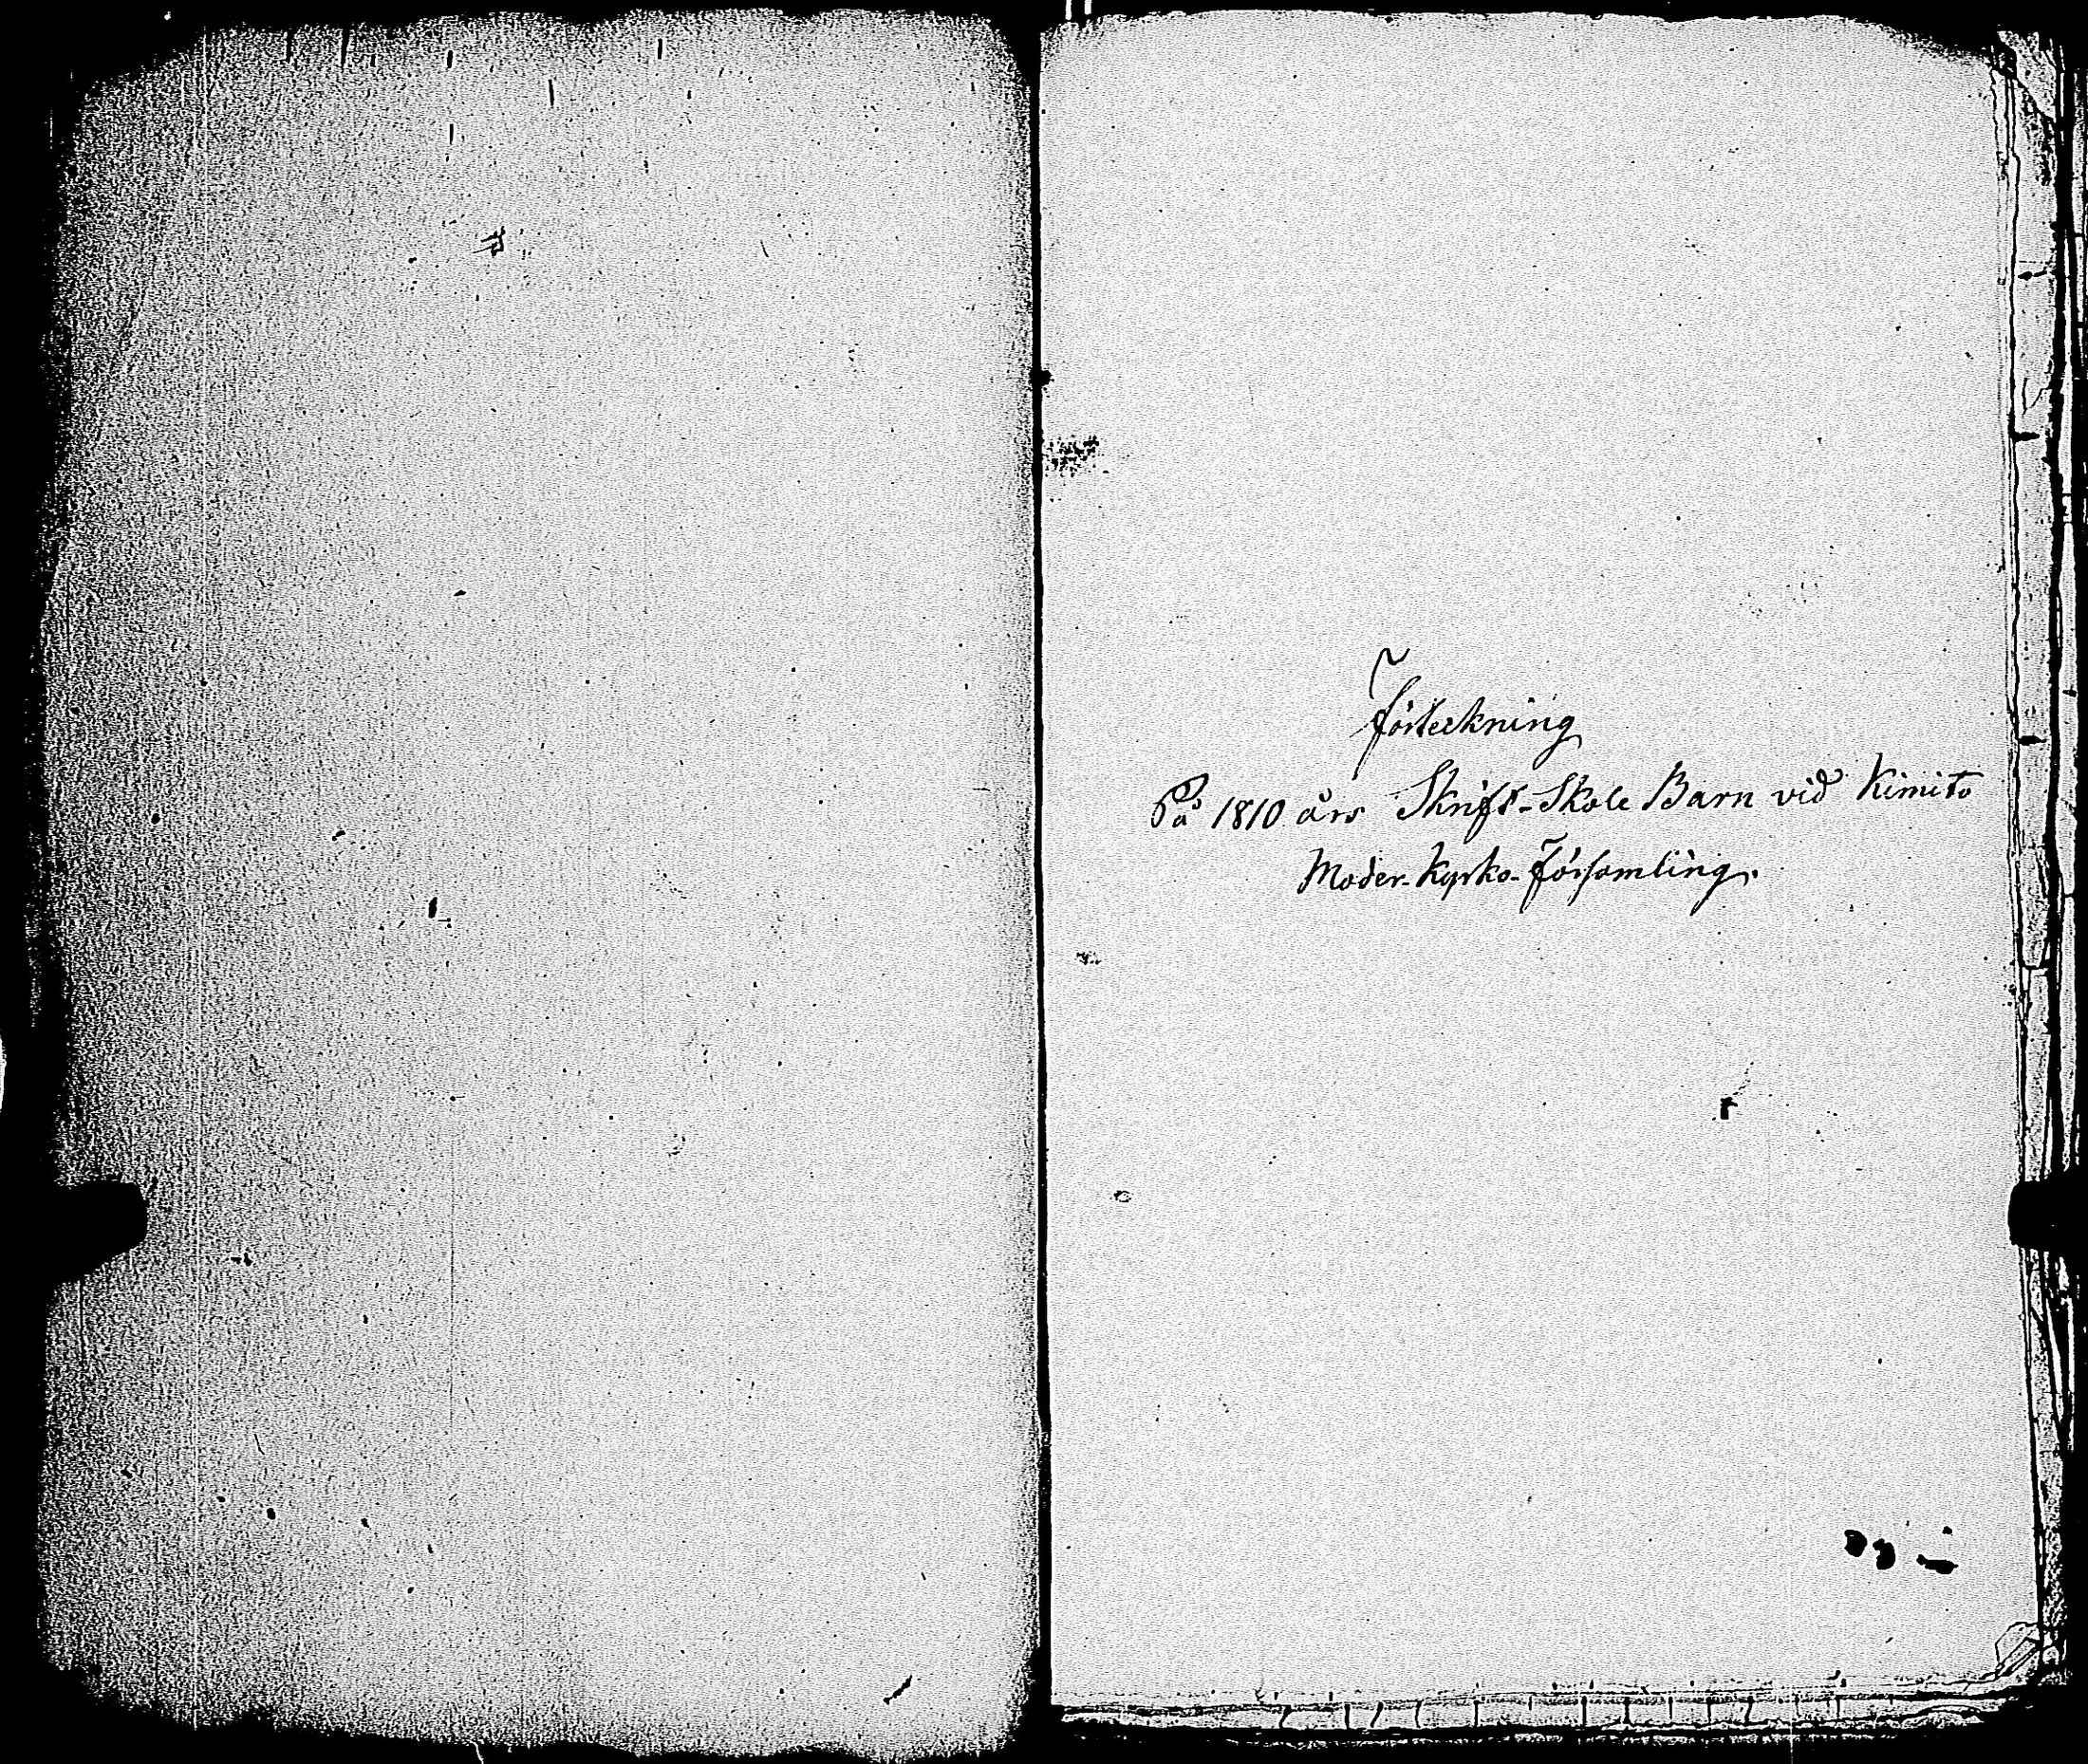 Förteckning
På 1810 års Skrift-Skole Barn vid Kimito
Moder-Kyrko-Församling.